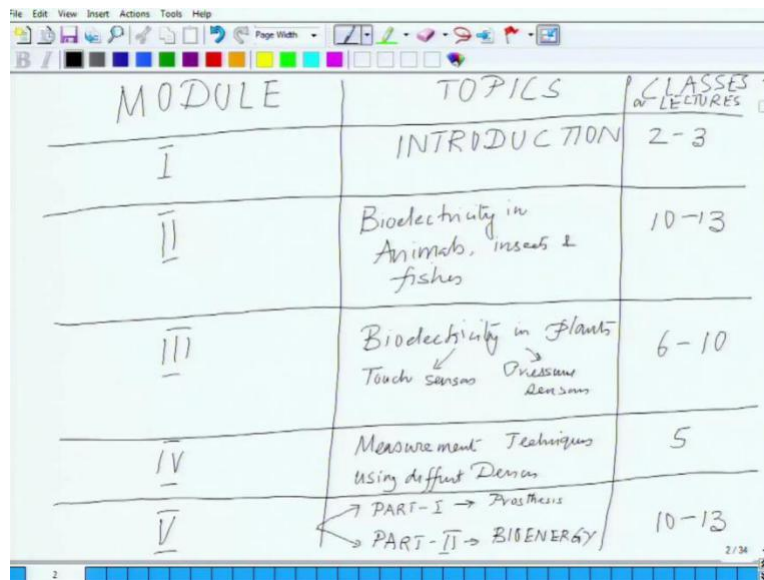 File Edit View Insert Actions Tools Help
Page Width
B I
MODULE TOPICS CLASSES
or LECTURES
I INTRODUCTION 2-3
II Bioelectricity in 10-13
Animals, insects &
fishes
III Bioelectricity in Plants 6-10
Touch sensors Pressure
sensors
IV Measurement Techniques 5
using
V PART-I → Prosthesis 10-13
PART-II → BIOENERGY
2 / 34
2